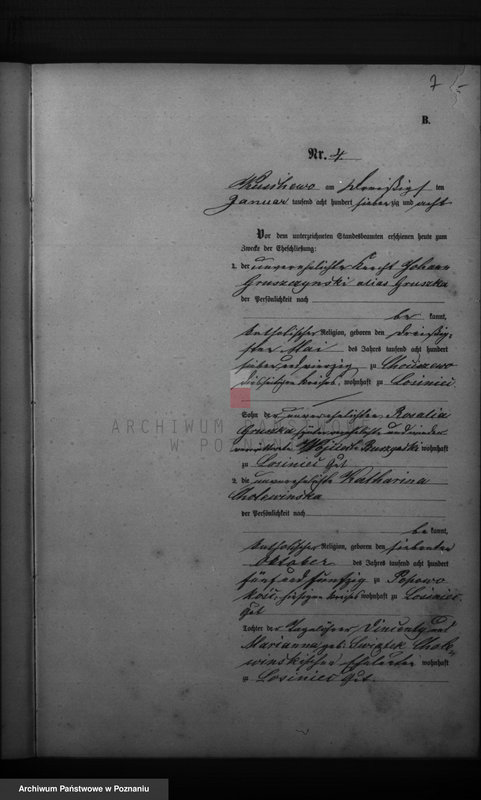 7
B.
Nr. 4
am Dreißigsten
Januar tausend acht hundert siebenzig und acht
Vor dem unterzeichneten Standesbeamten erschienen heute zum
Zwecke der Eheschließung:
1. der unverehelichte Knecht Johann
Gruszczynski alias Gruszka
der Persönlichkeit nach
be kannt,
katholischer Religion, geboren den dreißig-
sten Mai des Jahres tausend acht hundert
sieben und vierzig zu
Kreises, wohnhaft zu Losiniec
ARCHIWUM PAŃSTWOWE
W POZNANIU
Sohn der unverehelichten Rosalia
Gruszka und wieder
Buszynski wohnhaft
zu Losiniec Gut
2. die unverehelichte Katharina
Cholewinska
der Persönlichkeit nach
be kannt,
katholischer Religion, geboren den siebenten
Oktober des Jahres tausend acht hundert
fünf und fünfzig zu Popowo
kosc. hiesigen Kreises wohnhaft zu Losiniec
Gut
Tochter der Tagelöhner Vincenty und
Marianna geb. Swiatek Chole-
winskischen Eheleute wohnhaft
zu Losiniec Gut
Archiwum Państwowe w Poznaniu